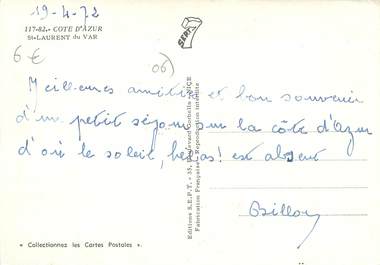 19-4-72
117-82.- COTE D'AZUR
St-LAURENT du VAR
6 €
06)
SEPT
Meilleures amitiés et bon souvenir
d'un petit séjour sur la côte d'Azur
d'où le soleil, hélas! est absent
Billoy
Editions S.E.P.T. - 55, Boulevard NICE
Fabrication Française - Reproduction interdite
« Collectionnez les Cartes Postales ».